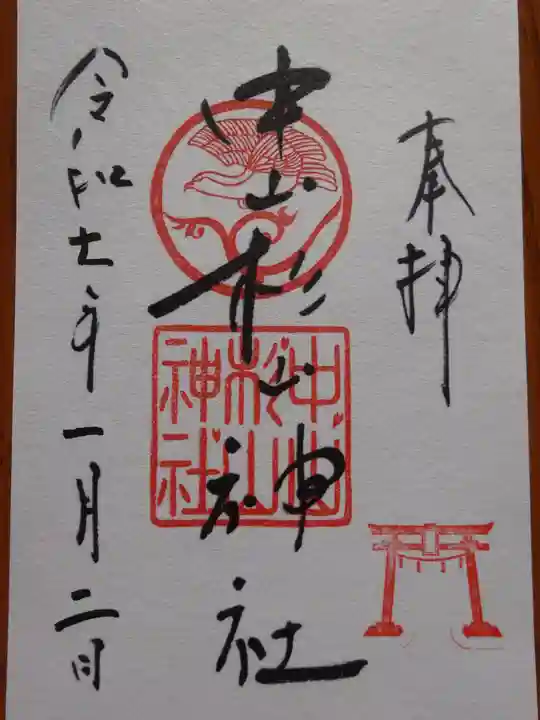 奉拝
中山杉山神社
中山
杉山
神社
令和七年一月二日